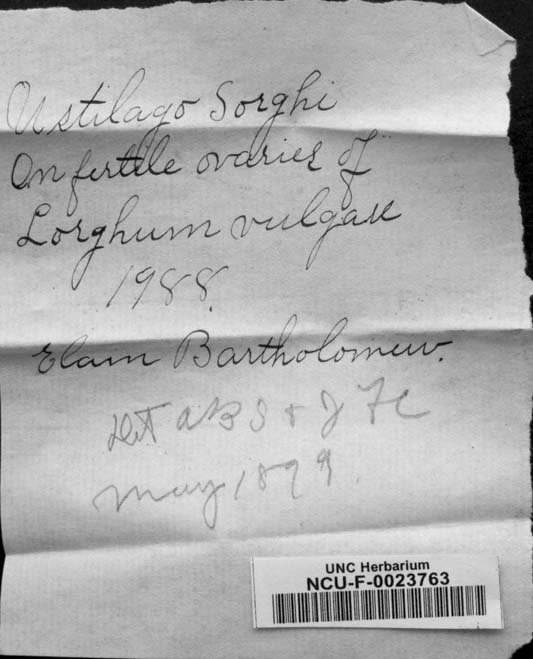 Ustilago Sorghi
On fertile ovaries of
Sorghum vulgare
1988.
Elam Bartholomew.
Det ABS & J F C
May 1899.
UNC Herbarium
NCU-F-0023763